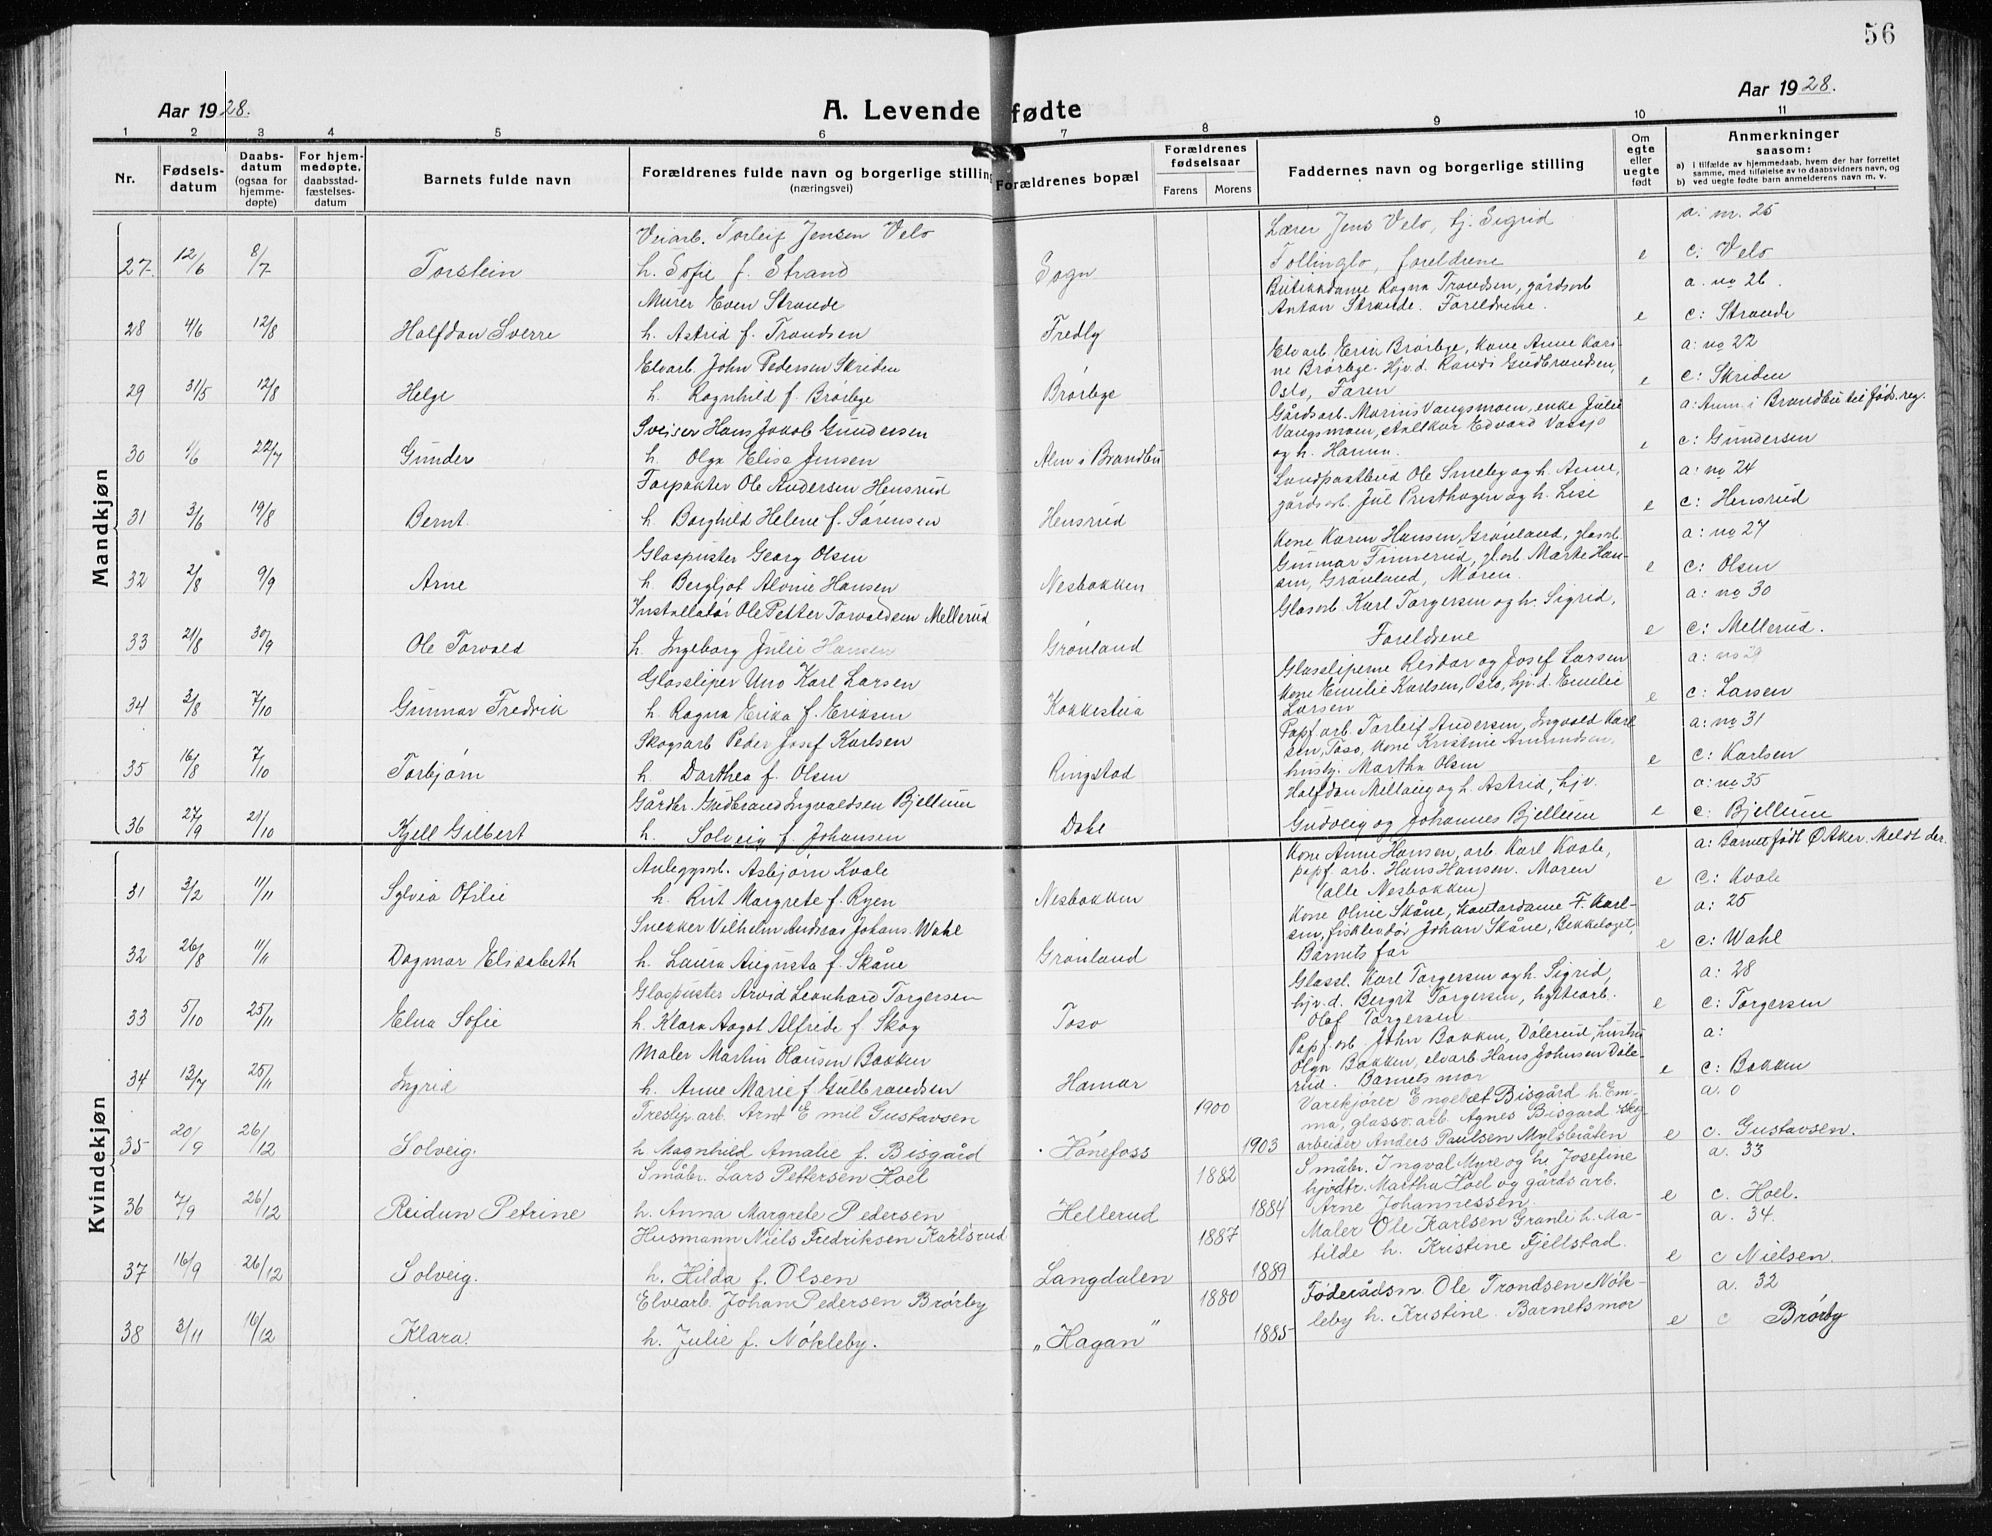 56
Aar 1928.
A. Levende fødte
Aar 1928.
1 2 3 4 5 6 7 8 9 10 11
Nr.
Fødsels-
datum
Daabs-
datum
(ogsaa for
hjemme-
døpte)
For hjem-
medøpte,
daabsstad-
fæstelses-
datum
Barnets fulde navn
Forældrenes fulde navn og borgerlige stilling
(næringsvei)
Forældrenes bopæl
Forældrenes
fødselsaar
Farens Morens
Faddernes navn og borgerlige stilling
Om
egte
eller
uegte
født
Anmerkninger
saasom:
a) i tilfælde av hjemmedaab, hvem der har forrettet
samme, med tilføielse av to daabsvidners navn, og
b) ved uegte fødte barn anmelderens navn m. v.
Mandkjøn
Veiarb. Torleif Jensen Velo Lærer Jens Velo, tj. Sigrid a: nr. 25
27. 12/6 8/7 Torstein h. Sofie f. Strand Sogn Tollinglo, foreldrene e c: Velo
Murer Even Strande Butikkdame Ragna Trondsen, gårdsarb a. no 26.
Anton Strande. Foreldrene.
28 4/6 12/8 Halfdan Sverre h. Astrid f. Trondsen Fredly e c: Strande
Elvarb. John Pedersen Skriden Elvarb Erik Brørbye, Kone Anne Kari- a: no 22
ne Brørbye. Hjv.d. Randi Gudbrandsen,
29 31/5 12/8 Helge h. Ragnhild f. Brørbye Brørbye Oslo, Faren e c: Skriden
Sveiser Hans Jakob Gundersen Gårdsarb. Marius Vangsmoen, enke Julie a: Anm. i Brandbu tilføds.reg.
Vangsmoen,
30 1/6 22/7 Gunder h. Olga Elise Jensen Alm i Brandbu og h. Hanna. e c: Gundersen
Forpakter Ole Andersen Hensrud Landpostbud Ole Smeby og h. Anne, a: no 24
31 3/6 19/8 Bernt. h. Borghild Helene f. Sørensen Hensrud gårdsarb. Jul Presthagen og h. Lise e c: Hensrud
Glaspuster Georg Olsen Kone Karen Hansen, Grønland, glasarb. a: no 27
Gunnar Finnerud, gl.arb Marte Han-
32 2/8 9/9 Arne h. Bergljot Alovie Hansen Nesbakken sen, Grønland, Moren. e c: Olsen
Installatør Ole Petter Torvaldsen Mellerud Glasarb Karl Torgersen og h. Sigrid, a: no 30
33 21/8 30/9 Ole Torvald h. Ingeborg Julie Hansen Grønland Foreldrene e c: Mellerud.
Glassliper Uno Karl Larsen Glassliperne Reidar og Josef Larsen a: no 29
Kone Emilie Karlsen, Oslo, hjv.d. Emelie
34 3/8 7/10 Gunnar Fredrik h. Ragna Erika f. Eriksen Kokkestua Larsen e c: Larsen
Skogsarb Peder Josef Karlsen Papf arb. Torleif Andersen, Ingvald Karl- a: no 31
sen, Toso, kone Kristine Amundsen,
35 16/8 7/10 Torbjørn h. Dorthea f. Olsen Ringstad husbj. Martha Olsen e c: Karlsen
Gårdbr. Gudbrand Ingvaldsen Bjellum Halfdan Millang og h. Astrid, hjv. a: no 35
36 27/9 21/10 Kjell Gilbert h. Solveig f. Johansen Dahl Gudveig og Johannes Bjellum e c: Bjellum
Kvindekjøn
Anleggsarb. Asbjørn Kvale Kone Anne Hansen, arb. Karl Kvale, a: Barnet født Ø Aker. Meldt der.
papf. arb. Hans Hansen. Moren
31 3/2 11/11 Sylvia Otilie h. Rut Margrete f. Ryen Nesbakken (alle Nesbakken) e c: Kvale
Snekker Vilhelm Andreas Johans. Wahl Kone Olive Skåne, Kontordame F. Karl- a: 25
sen, Johan Skåne, Bekkelaget,
32 26/8 11/11 Dagmar Elisabeth h. Laura Augusta f. Skåne Grønland Barnets far e c: Wahl
Glaspuster Arvid Leonhard Torgersen Glassl. Karl Torgersen og h. Sigrid, a: 28
hjv.d. Bergit Torgersen, hyttearb.
33 5/10 25/11 Elna Sofie h. Klara Aagot Alfride f. Skog Toso Olaf Torgersen e c: Torgersen
Maler Martin Olausen Bakken Papf. arb John Bakken, Dølerud, hustru a:
Olga Bakken, elvarb Hans Johnsen Døle-
34 13/7 25/11 Ingrid h. Anne Marie f. Gulbrandsen Hamar rud. Barnets mor e c: Bakken
Treslip. arb. Arnt Emil Gustavsen 1900 Varekjører Engebet Bisgård h. Em- a. 0
ma, glassv. arb Agnes Bisgård skog-
35 20/9 26/12 Solveig. h Magnhild Amalie f. Bisgård Hønefoss 1903 arbeider Anders Paulsen Mylsbråten e c. Gustavsen.
Småbr. Lars Pettersen Hoel 1882 Småbr. Ingval Myre og h. Josefine a. 33
hjvdtr. Martha Hoel og gårds arb.
36 7/9 26/12 Reidun Petrine h. Anna Margrete Pedersen Hellerud 1884 Arne Johannessen. e c. Hoel.
Husmann Niels Fredriksen Karlsrud 1887 Maler Ole Karlsen Granli h. Ma- a. 34.
tilde h. Kristine Fjellstad
37 16/9 26/12 Solveig. h. Hilda f. Olsen Langdalen 1889 e c Nielsen.
Elvearb. Johan Pedersen Brørby 1880 Føderådsm. Ole Trondsen Nøk- a. 32
leby h. Kristine. Barnets mor
38 3/11 16/12 Klara. h. Julie f. Nøkleby. „Hagan” 1885 e c Brørby